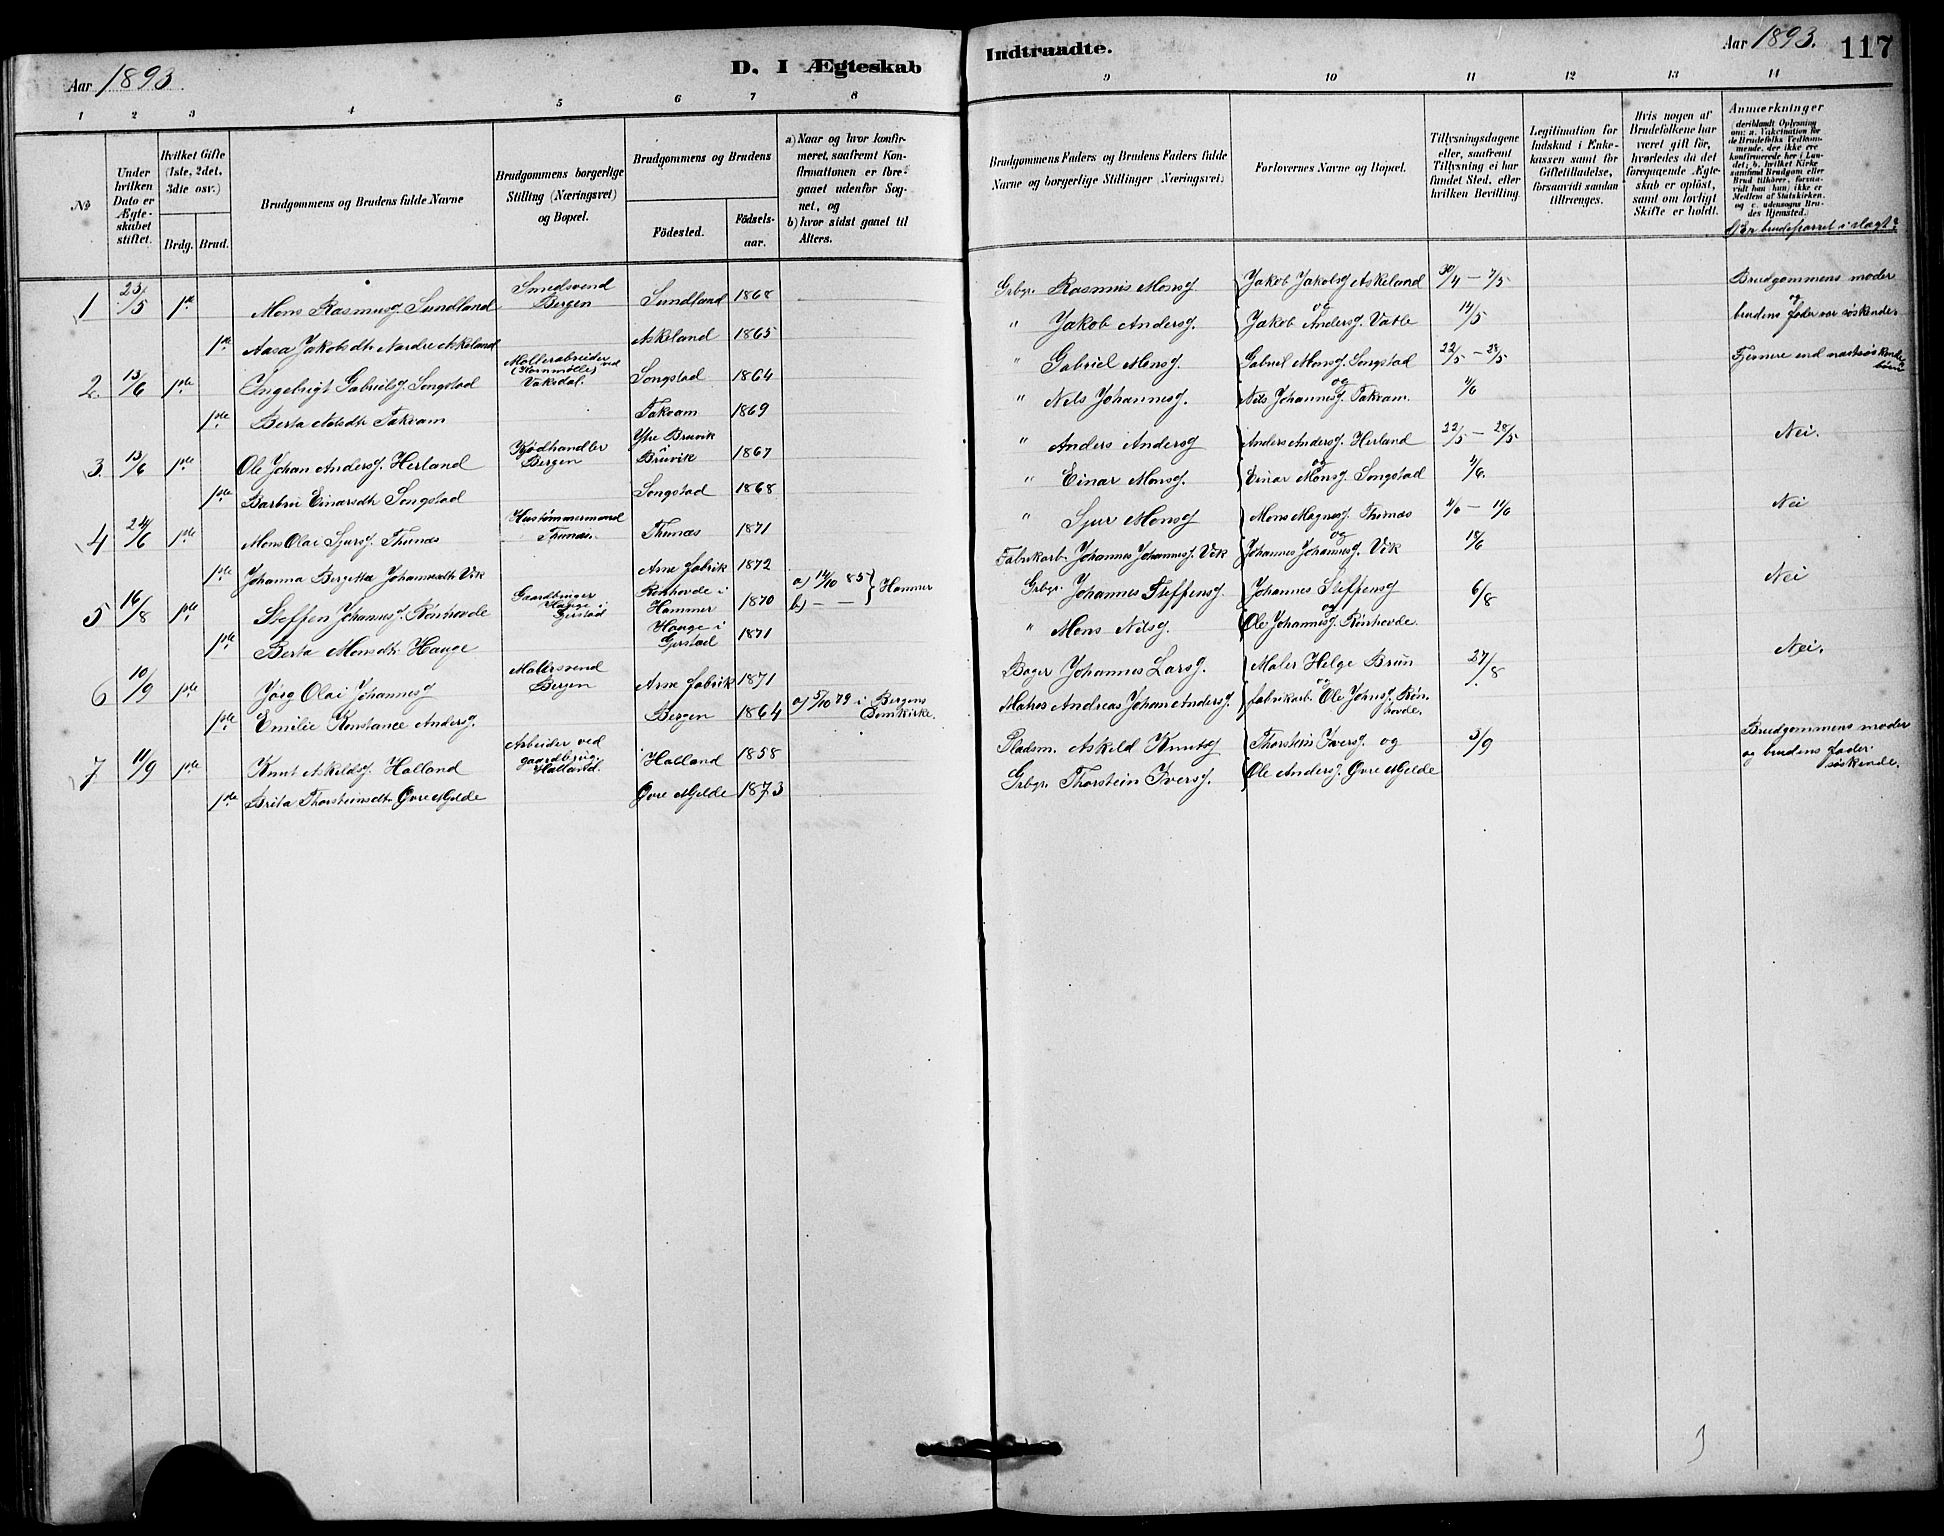 Aar 1893.
D. I Ægteskab
Indtraadte.
Aar 1893.
117
1 2 3 4 5 6 7 8 9 10 11 12 13 14
No
Under hvilken Dato er Ægteskabet stiftet.
Hvilket Gifte (1ste, 2det, 3die osv.)
Brdg.
Brud.
Brudgommens og Brudens fulde Navne
Brudgommens borgerlige Stilling (Næringsvei) og Bopæl.
Brudgommens og Brudens
Födested.
Födsels-aar.
a) Naar og hvor konfirmeret, saafremt Konfirmationen er foregaaet udenfor Sognet, og
b) hvor sidst gaaet til Alters.
Brudgommens Faders og Brudens Faders fulde Navne og borgerlige Stillinger (Næringsvei)
Forlovernes Navne og Bopæl.
Tillysningsdagene eller, saafremt Tillysning ei har fundet Sted, efter hvilken Bevilling.
Legitimation for Indskud i Enkekassen samt for Giftetilladelse, forsaavidt saadan tiltrænges.
Hvis nogen af Brudefolkene har været gift för, hvorledes da det foregaaende Ægteskab er oplöst, samt om lovligt Skifte er holdt.
Anmærkninger
deriblandt Oplysning om: a. Vakcination for de Brudefolks Vedkommende, der ikke ere konfirmerede her i Landet; b. hvilket Kirkesamfund Brudgom eller Brud tilhörer, forsaavidt han (hun) ikke er Medlem af Statskirken, og c. udensogns Brudes Hjemsted.)
d) Er brudeparret i slægt?
1 23/5 1ste Mons Rasmusg. Sundland Smedsvend Bergen Sundland 1868 Grbgr. Rasmus Monsg Jakob Jakobsg Askeland 30/4 – 7/5 Brudgommens moder
og
1ste Aasa Jakobsdtr. Nordre Askeland Askeland 1865 " Jakob Andersg. Jakob Andersg. Vatle 14/5 brudens fader var søskende.
2. 13/6 1ste Ingebrigt Gabrielsg. Songstad Møllerarbeider ved (Kornmølle) Vaksdal. Songstad 1864 " Gabriel Monsg. Gabriel Monsg. Songstad 22/5 – 28/5 Fjernere end næstsøskendebörn
og
1ste Berta Nilsdtr. Takvam Takvam 1869 " Nils Johannesg. Nils Johannesg. Takvam. 4/6
3. 13/6 1ste Ole Johan Andersg. Herland Kjødhandler Bergen Ytre Bruvik Bruvik 1867 " Anders Andersg Anders Andersg. Herland 22/5 – 28/5 Nei.
og
1ste Barbru Einarsdtr. Songstad Songstad 1868 " Einar Monsg. Einar Monsg. Songstad 4/6.
4 24/6 1ste Mons Olai Sjursg. Thunæs Hustømmermand Thunæs. Thunæs 1871 " Sjur Monsg Mons Magnesg. Thunæs 4/6 – 11/6 Nei
og
1ste Johanna Bergitta Johannesdtr. Vik Arne fabrik 1872 Fabrikarb. Johannes Johannesg. Vik Johannes Johannesg. Vik 18/6
5 16/8 1ste Steffen Johannesg. Rönhovde Gaardbruger Hauge i Gjerstad Rönhovde i Hammer 1870 a) 14/10 85 b) — — } Hammer Grbgr. Johannes Steffensg Johannes Steffensg 6/8 Nei
og
1ste Berta Monsdtr. Hauge Hauge i Gjerstad 1871 " Mons Nilsg. Ole Johannesg. Rönhovde.
6 10/9 1ste Jörg Olai Johannesg Malersvend Bergen Arne fabrik 1871 Bager Johannes Larsg. Maler Helge Brun 27/8. Nei.
og
1ste Emilie Konstance Andersg. Bergen 1864 a) 5/10 79 i Bergens Domkirke. Matros Andreas Johan Andersg. fabrikarb. Ole Johnsg. Rönhovde.
7 11/9 1ste Knut Askildsg. Halland Arbeider ved gaardbrug. Halland. Halland 1858 Pladsm. Askild Knutsg Thorstein Iversg. og 3/9 Brudgommens moder og brudens fader søskende.
1ste Brita Thorsteinsdtr. Øvre Mjelde Øvre Mjelde 1873 Grbgr. Thorstein Iversg. Ole Andersg. Øvre Mjelde